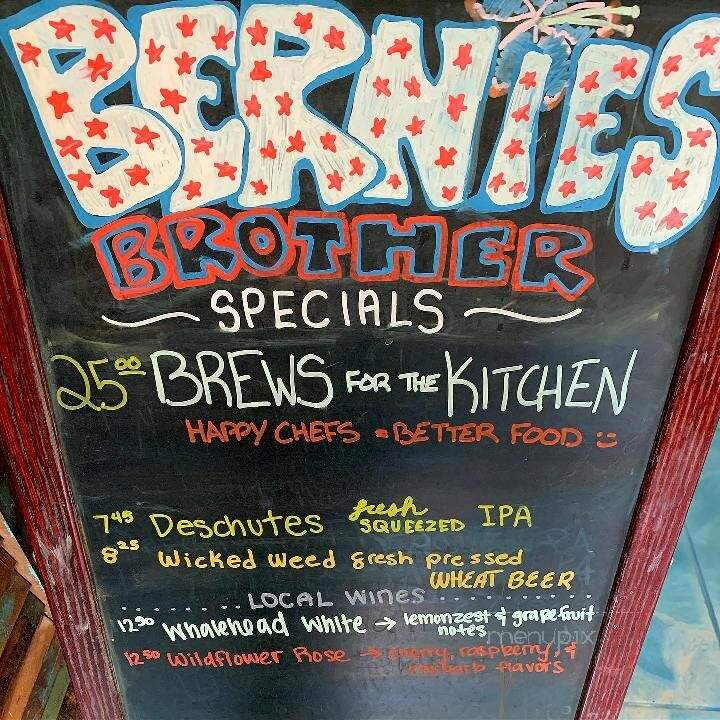 BERNIES
BROTHER
SPECIALS
25.00 BREWS FOR THE KITCHEN
HAPPY CHEFS = BETTER FOOD :)
7.45 Deschutes fresh SQUEEZED IPA
8.25 Wicked Weed fresh pressed
WHEAT BEER
LOCAL WINES
12.50 Whalehead White → lemonzest & grapefruit
notes
12.50 Wildflower Rose → cherry, raspberry, &
rhubarb flavors
menupix